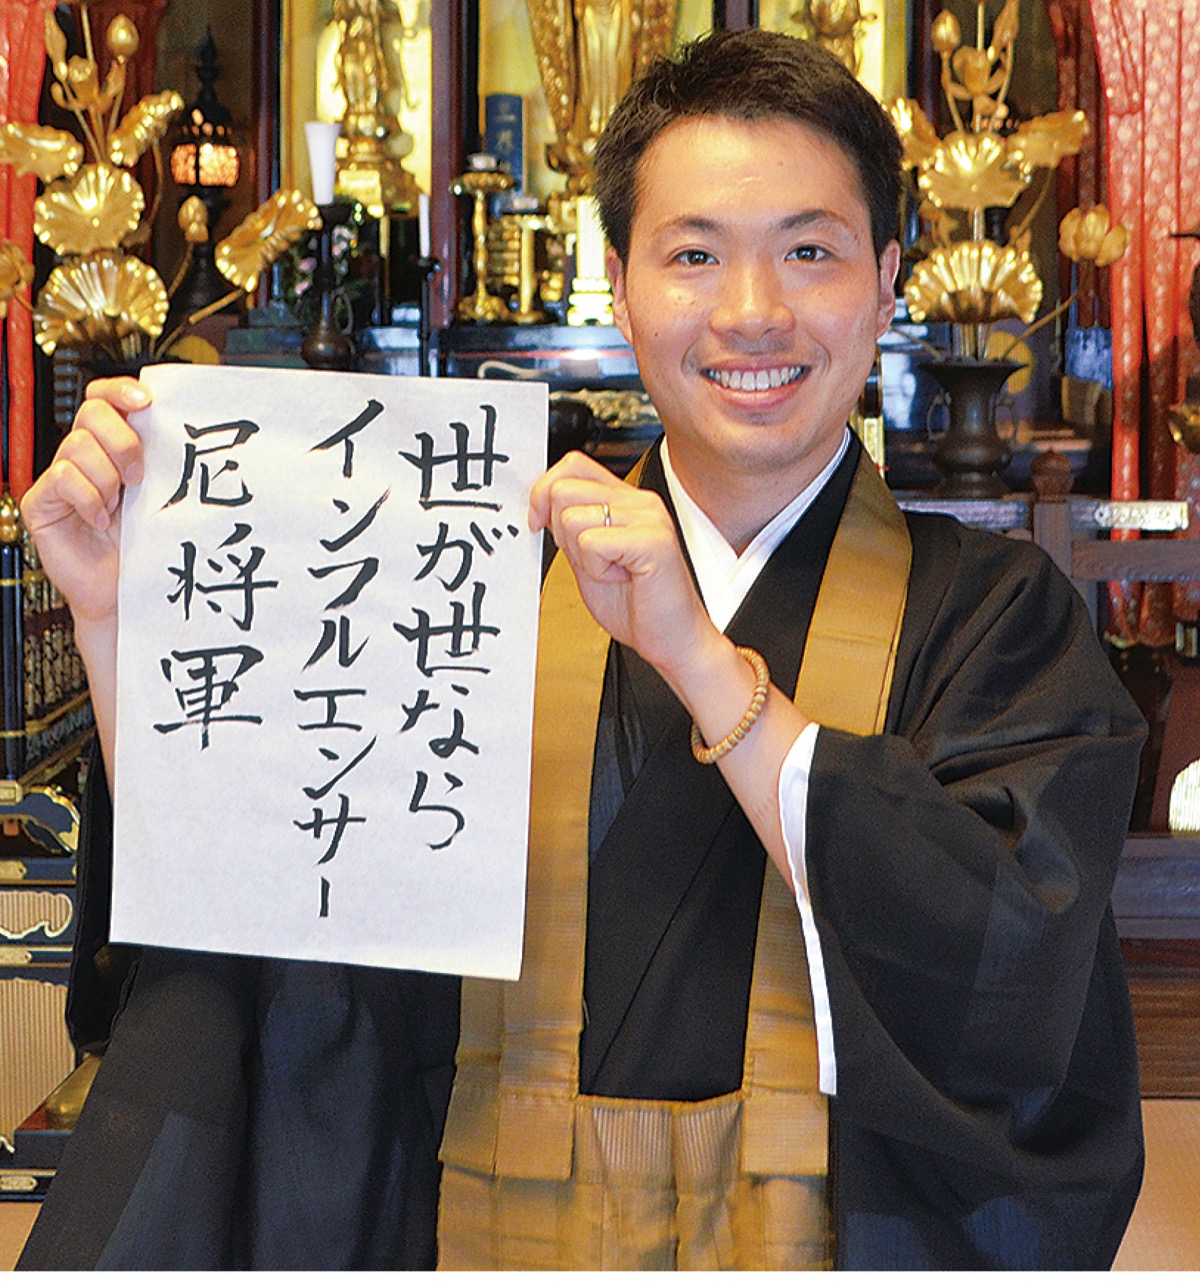 世が世なら
インフルエンサー
尼将軍